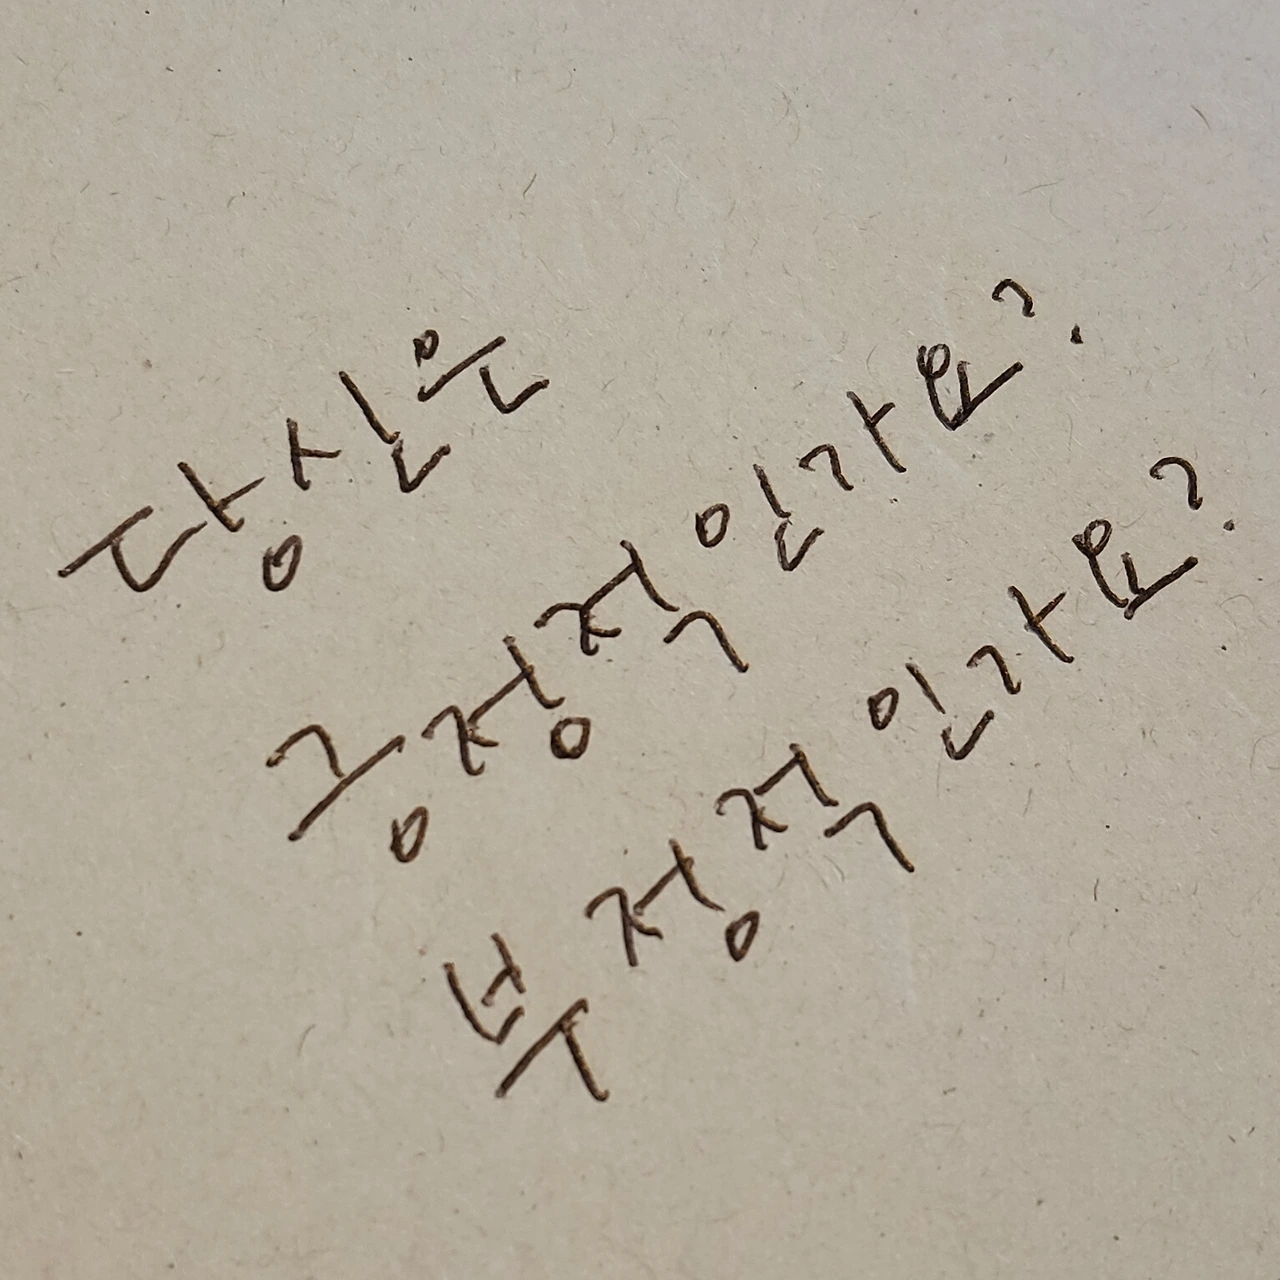 당신은
긍정적 인가요?
부정적 인가요?